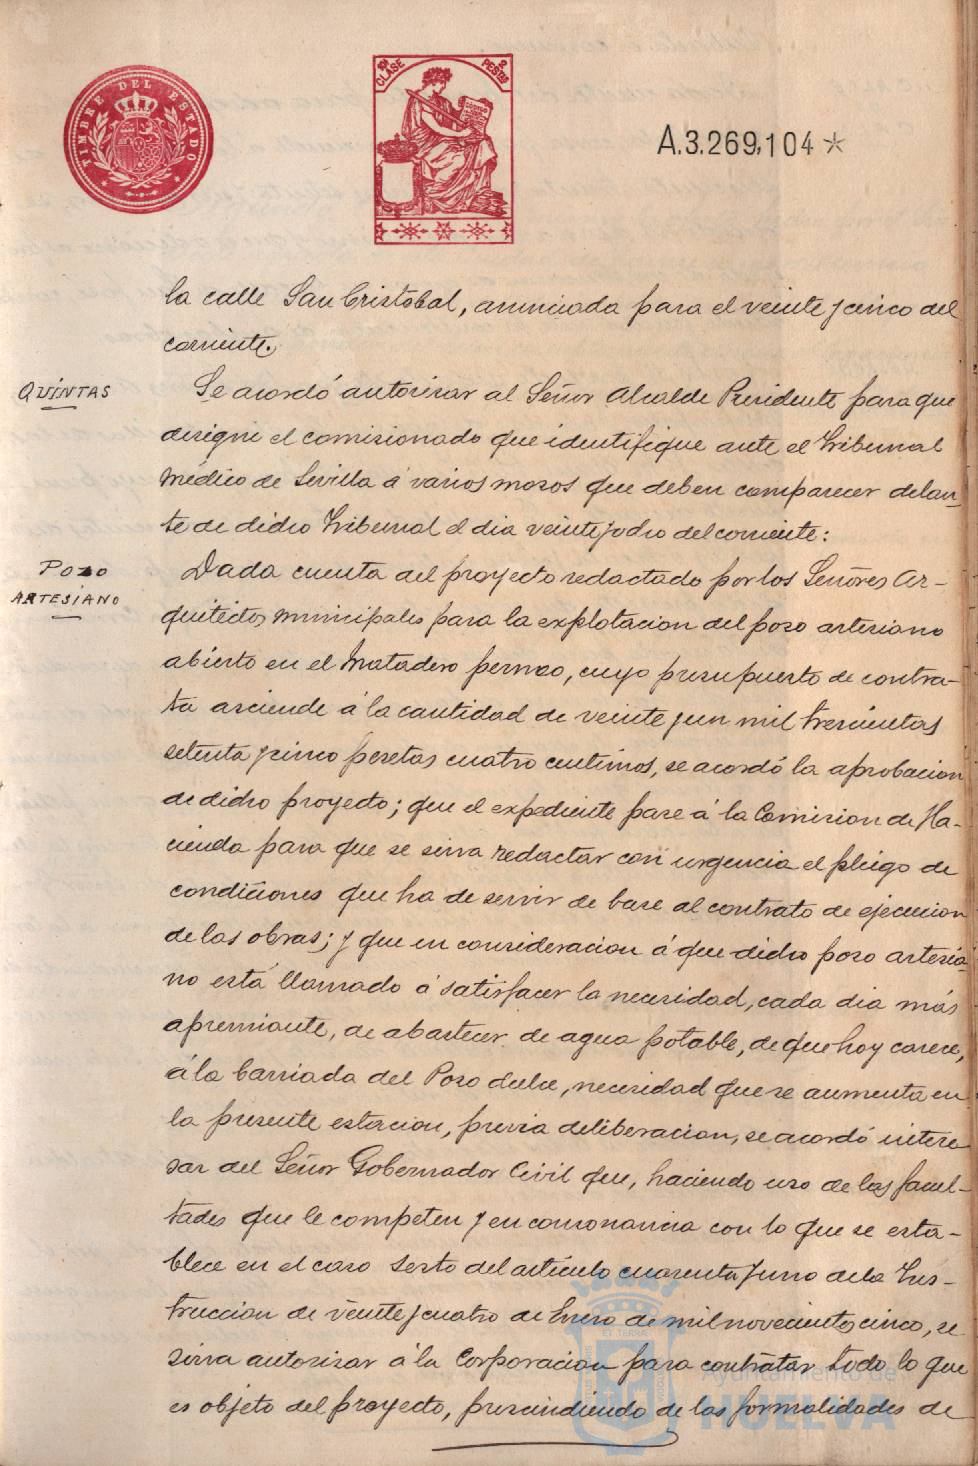 TIMBRE DEL ESTADO
10ª CLASE
2 PESTAS
A.3.269,104*
la calle San Cristóbal, anunciada para el veinte y cinco del
corriente.
QUINTAS
Se acordó autorizar al Señor Alcalde Presidente para que
designe el comisionado que identifique ante el Tribunal
Médico de Sevilla á varios mozos que deben comparecer delan-
te de dicho Tribunal el dia veinte y ocho del corriente:
POZO
ARTESIANO
Dada cuenta del proyecto redactado por los Señores Ar-
quitectos municipales para la explotacion del pozo artesiano
abierto en el Matadero perneo, cuyo presupuesto de contra-
ta asciende á la cantidad de veinte y un mil trescientas
setenta y cinco pesetas cuatro centimos, se acordó la aprobacion
de dicho proyecto; que el expediente pase á la Comision de Ha-
cienda para que se sirva redactar con urgencia el pliego de
condiciones que ha de servir de base al contrato de ejecucion
de las obras; y que en consideracion á que dicho pozo artesia-
no está llamado á satisfacer la necesidad, cada dia más
apremiante, de abastecer de agua potable, de que hoy carece,
á la barriada del Pozo dulce, necesidad que se aumenta en
la presente estacion, previa deliberacion, se acordó intere
sar del Señor Gobernador Civil que, haciendo uso de las facul-
tades que le competen y en consonancia con lo que se esta-
blece en el caso sesto del artículo cuarenta y uno de la Ins-
truccion de veinte y cuatro de Enero de mil novecientos cinco, se
sirva autorizar á la Corporacion para contratar todo lo que
es objeto del proyecto, prescindiendo de las formalidades de
Ayuntamiento de
HUELVA